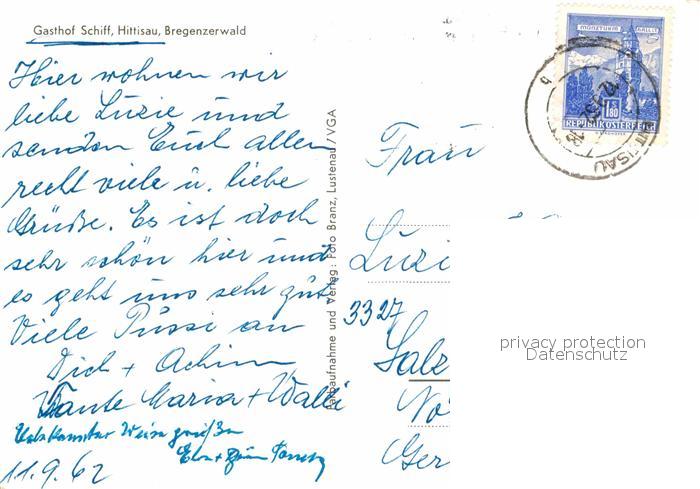 Gasthof Schiff, Hittisau, Bregenzerwald
Hier wohnen wir
liebe Luzie und
senden Euch allen
recht viele u. liebe
Grüße. Es ist doch
sehr schön hier und
es geht uns sehr gut.
Viele Pussi an
Dich + Achim
Tante Maria + Walli
Unbekannter Weise grüßen
11.9.62
Farbaufnahme und Verlag: Foto Branz, Lustenau / VGA
MÜNZTURM HALL I. T.
1S.80
REPUBLIK ÖSTERREICH
HITTISAU
Frau
Luzi
3327
Salz
No
Ger
privacy protection
Datenschutz